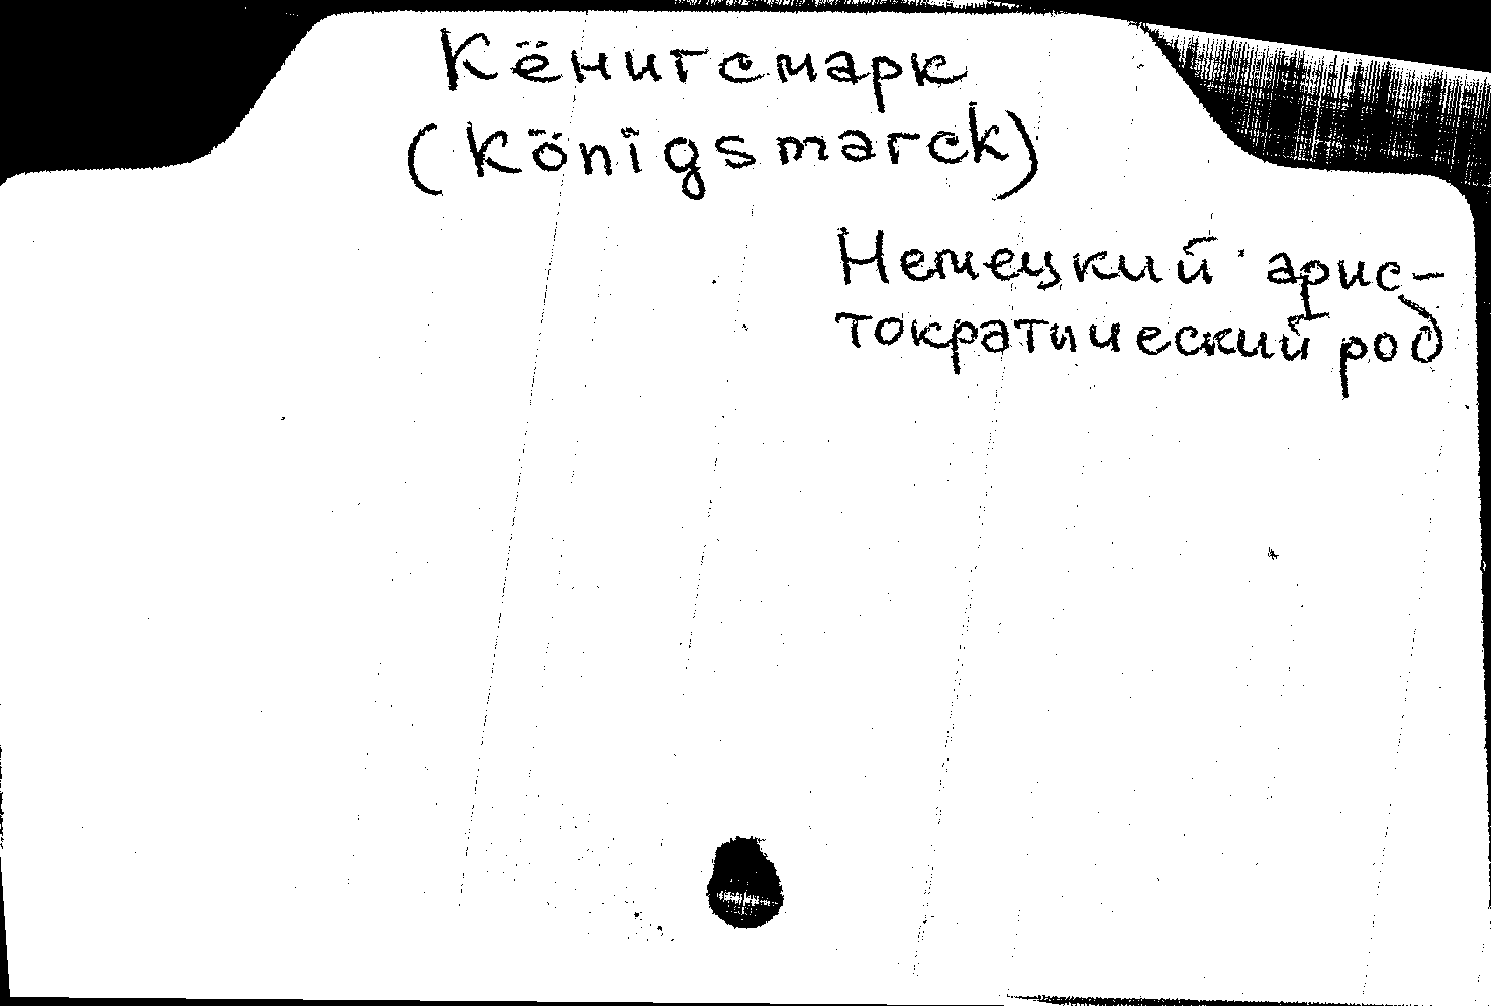 Кёнигсмарк
(Königsmarck)
Немецкий арис-
тократический род